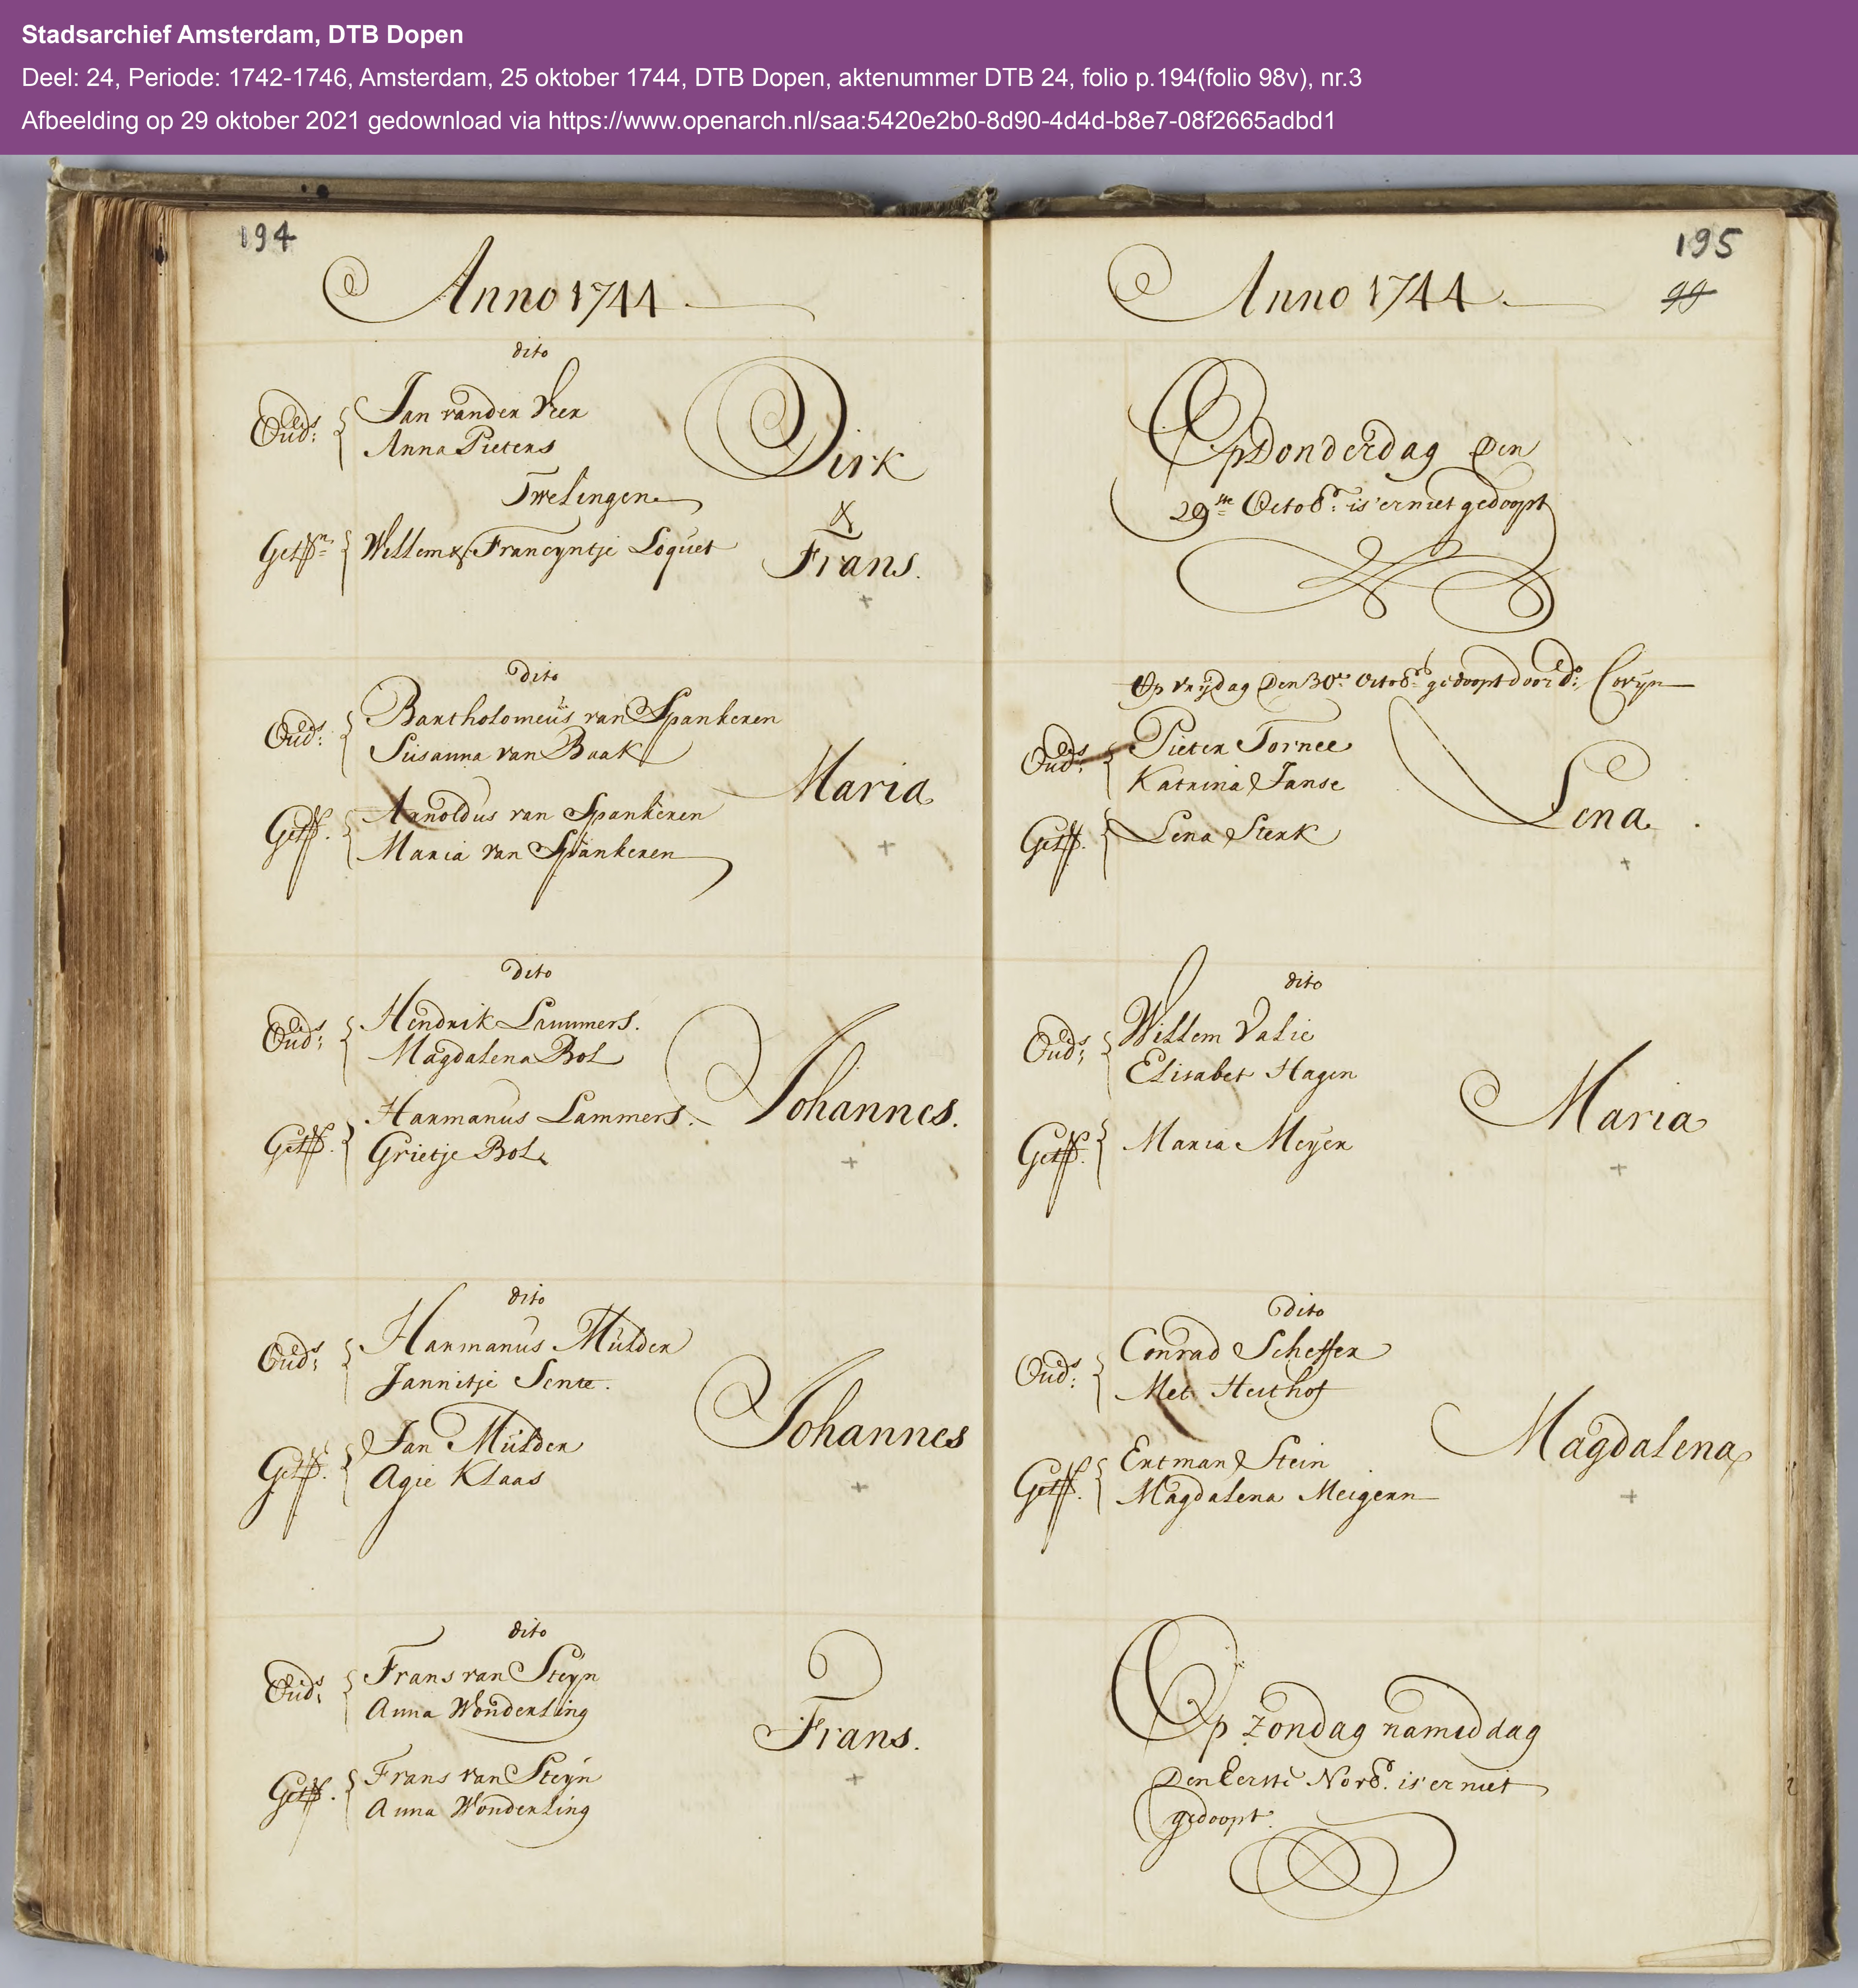 Stadsarchief Amsterdam, DTB Dopen
Deel: 24, Periode: 1742-1746, Amsterdam, 25 oktober 1744, DTB Dopen, aktenummer DTB 24, folio p.194(folio 98v), nr.3
Afbeelding op 29 oktober 2021 gedownload via https://www.openarch.nl/saa:5420e2b0-8d90-4d4d-b8e7-08f2665adbd1
194
Anno 1744.
dito
Ouds: Jan vander Veer
Anna Pieters
Dirk
Twelingen
&
Getss.n Willem & Francyntje Loquet
Frans.
+
dito
Ouds: Bartholomeus van Spankeren
Susanna van Baak
Maria
Getss. Arnoldus van Spankeren
Maria van Spankeren
+
dito
Ouds: Hendrik Lammers.
Magdalena Bol
Johannes.
Getss. Harmanus Lammers.
Grietje Bol
+
dito
Ouds: Harmanus Mulder
Jannitje Sente.
Johannes
Getss. Jan Mulder
Agie Klaas
+
dito
Ouds: Frans van Steyn
Anna Wonderling
Frans.
Getss. Frans van Steyn
Anna Wonderling
+
195
99
Anno 1744.
Op Donderdag Den
29ste Octobr: is'er niet gedoopt
Op vrydag Den 30e Octobr: gedoopt door Ds: Coryn
Ouds: Pieter Tornee
Katrina Janse
Lena
Getss. Lena Sterk
+
dito
Ouds: Willem Valie
Elisabet Hagen
Maria
Getss. Maria Meyer
+
dito
Ouds: Conrad Scheffer
Met Herthof
Magdalena
Getss. Ertman Stein
Magdalena Meigern
+
Op Zondag namiddag
Den Eerste Novbr. is'er niet
gedoopt.